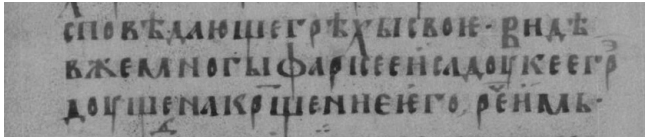 сповѣдающе грѣхы своѥ · видѣ
вже многы фарисеи и садоукеѥ грѧ
доуще на кр҃щениѥ ѥго, реч҃ имъ ·